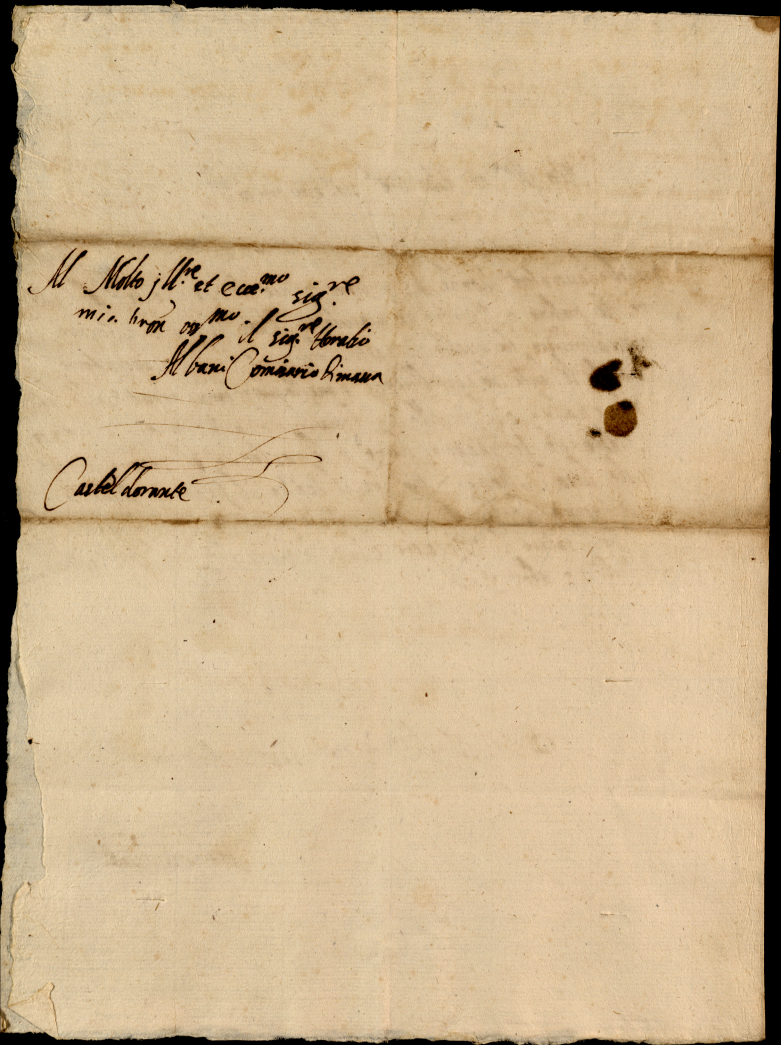 Al Molto Ill.re et ecce.mo sig.re
mio prōn oss.mo il sig.re Horatio
Albani Comissario
Casteldorante